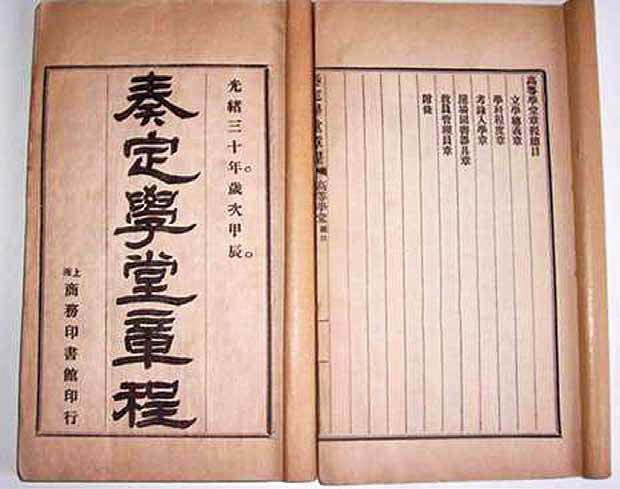 光緒三十年。歲次甲辰。
奏定學堂章程
上海商務印書館印行
高等學堂章程總目
立學總義章
學科程度章
考錄入學章
屋場圖書器具章
教員管理員章
附條
奏定學堂章程 高等學堂